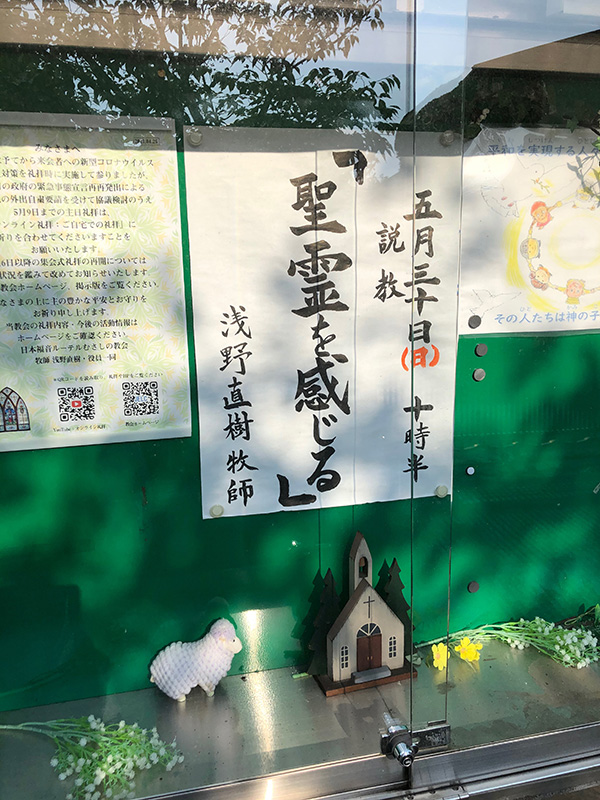 五月三十日(日) 十時半
説教
「聖霊を感じる」
浅野直樹牧師
みなさまへ
予てから来会者への新型コロナウイルス
対策を礼拝時に実施して参りましたが、
の政府の緊急事態宣言再再発出による
の外出自粛要請を受けて協議検討のうえ
5月9日までの主日礼拝は、
ンライン礼拝：ご自宅での礼拝」に
祈りを合わせてくださいますことを
お願いいたします。
6日以降の集会式礼拝の再開については
状況を鑑みて改めてお知らせいたします
教会ホームページ、掲示版をご覧ください。
なさまの上に主の豊かな平安とお守りを
お祈り申し上げます。
当教会の礼拝内容・今後の活動情報は
ホームページをご確認ください。
日本福音ルーテルむさしの教会
牧師 浅野直樹・役員一同
YouTube オンライン礼拝
教会ホームページ
平和を実現する人
その人たちは神の子